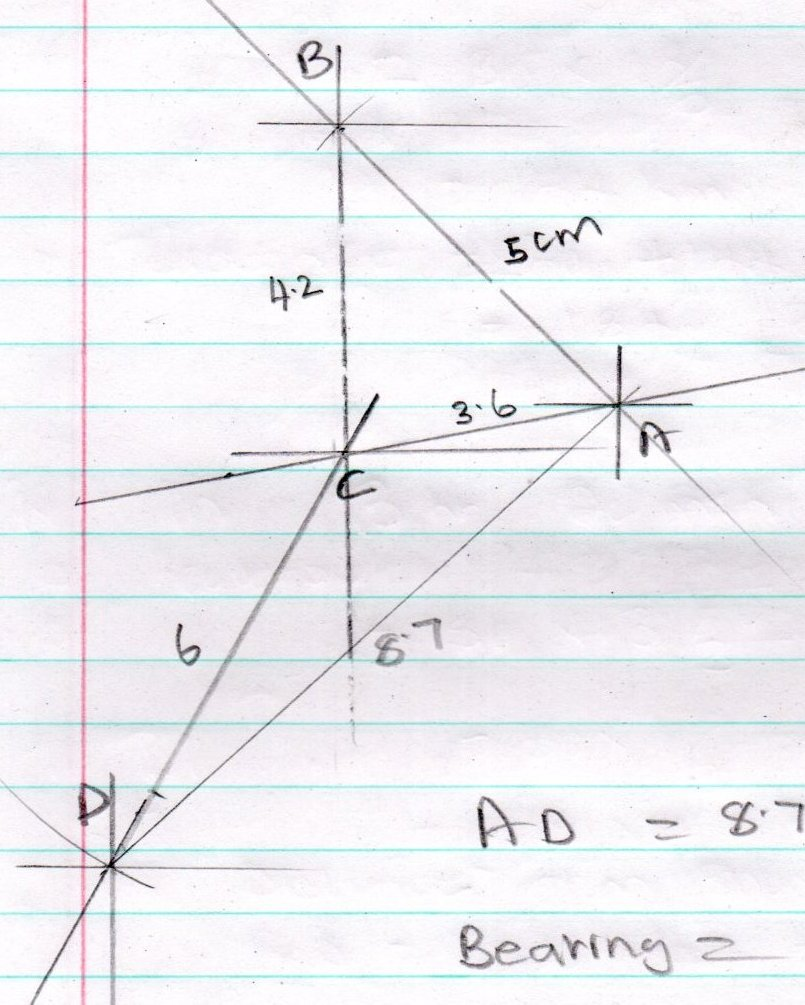 B
5cm
4.2
3.6
A
C
6
8.7
D
AD = 8.7
Bearing =